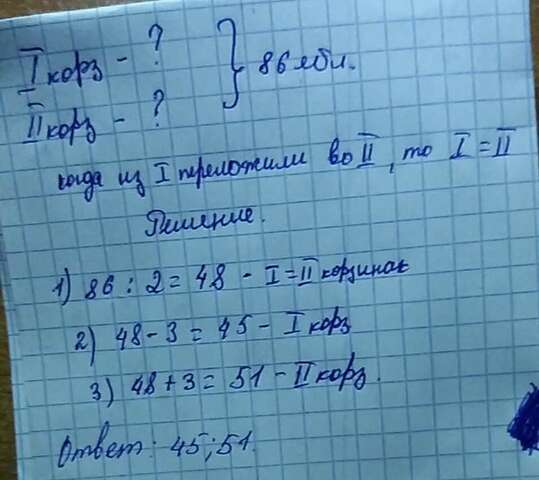 I корз - ?
86 ябл.
II корз - ?
когда из I переложили во II, то I = II
Решение.
1) 86 : 2 = 48 - I = II корзинах
2) 48 - 3 = 45 - I корз
3) 48 + 3 = 51 - II корз.
Ответ: 45; 51.